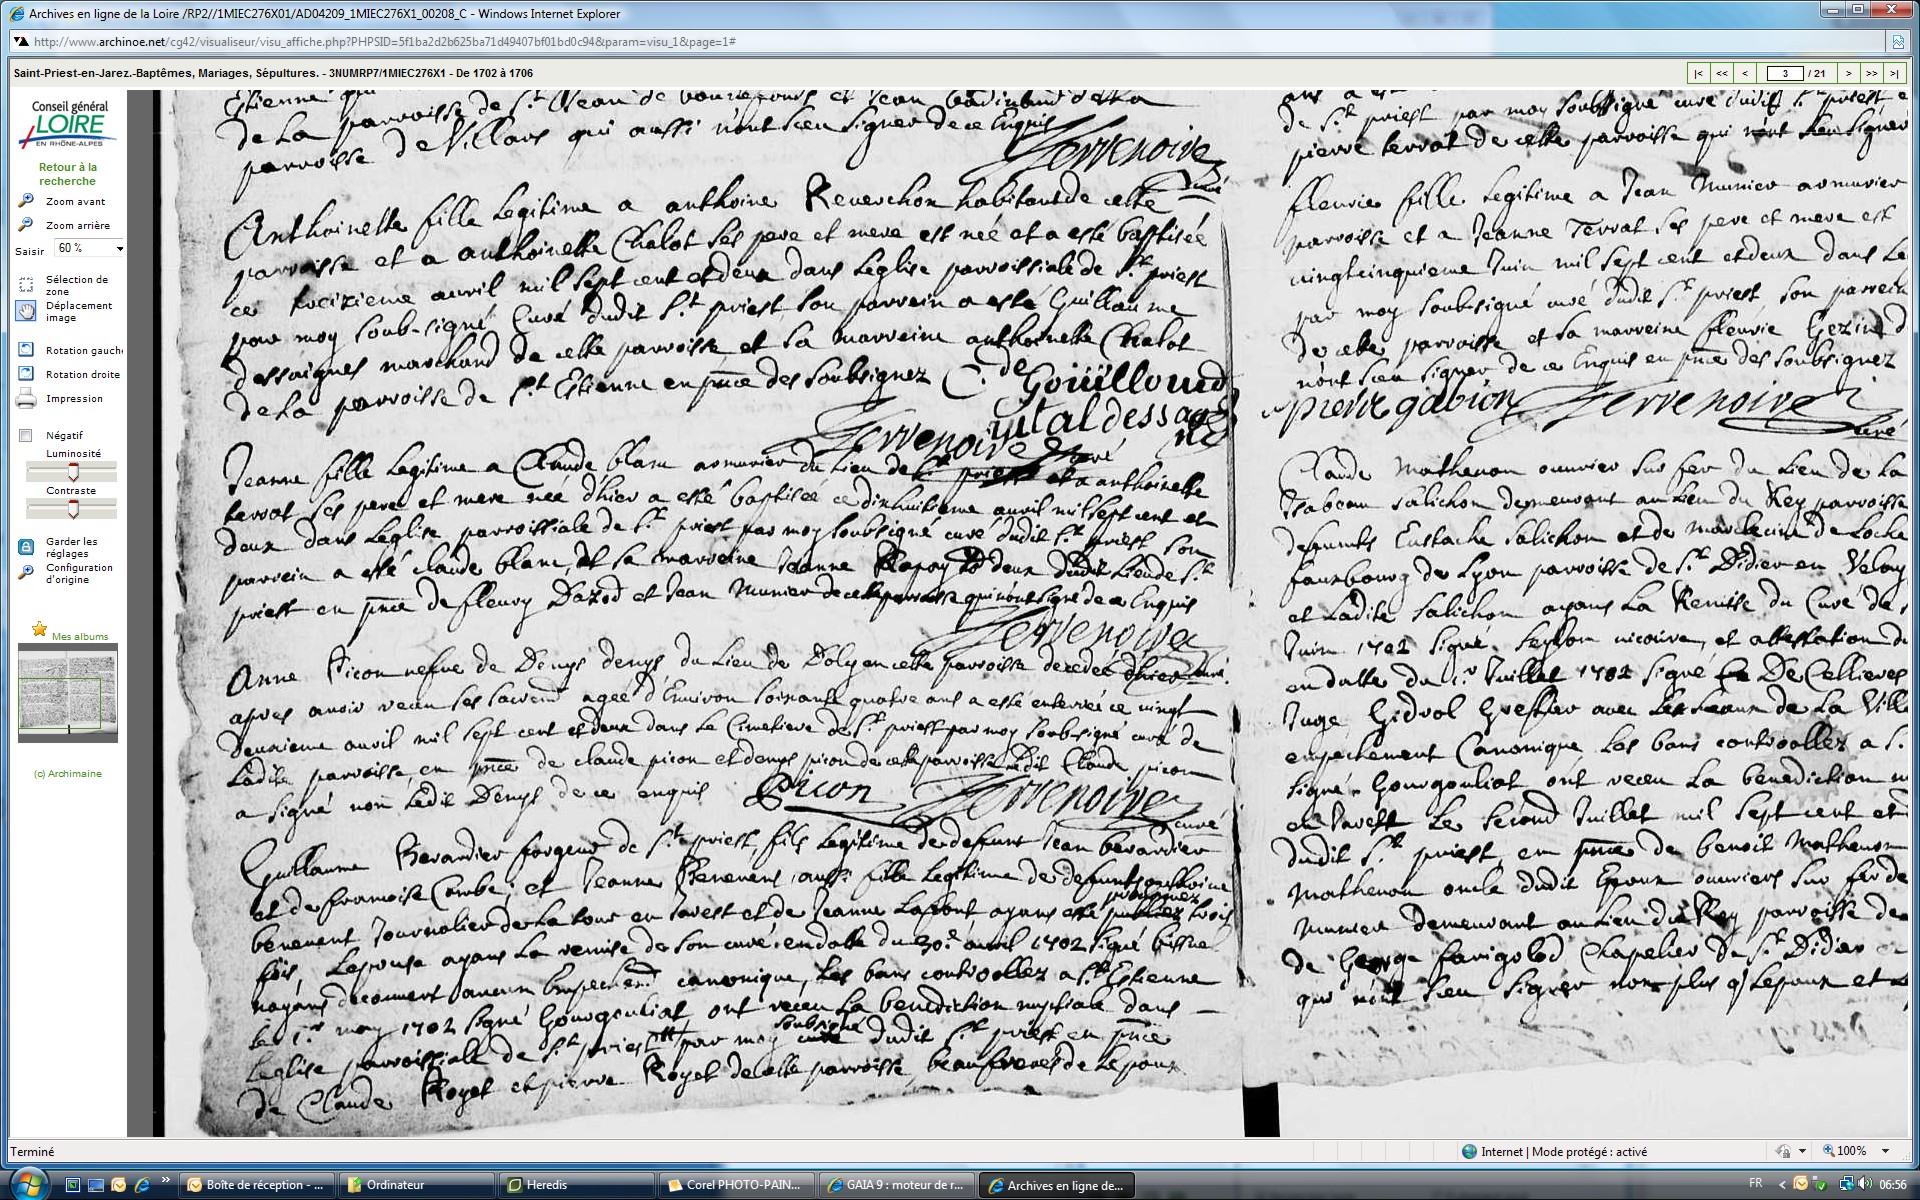 Archives en ligne de la Loire /RP2//1MIEC276X01/AD04209_1MIEC276X1_00208_C - Windows Internet Explorer
http://www.archinoe.net/cg42/visualiseur/visu_affiche.php?PHPSID=5f1ba2d2b625ba71d49407bf01bd0c94&param=visu_1&page=1#
Saint-Priest-en-Jarez.-Baptêmes, Mariages, Sépultures. - 3NUMRP7/1MIEC276X1 - De 1702 à 1706
|< << < 3 / 21 > >> >|
Conseil général
LOIRE
EN RHÔNE-ALPES
Retour à la
recherche
Zoom avant
Zoom arrière
Saisir 60 %
Sélection de
zone
Déplacement
image
Rotation gauche
Rotation droite
Impression
Négatif
Luminosité
Contraste
Garder les
réglages
Configuration
d'origine
Mes albums
(c) Archimaine
de la parroisse de St Jean de bonnefonds et Jean
parroisse de Villars qui aussi n'ont sceu signer de ce Enquis
Terrenoire
curé
Anthoinette fille legitime a anthoine Reverchon habitant de cette
parroisse et a anthoinette Chalot ses pere et mere est née et a esté baptisée
ce treizieme avril mil sept cent et deux dans Leglise parroissiale de St priest
par moy soub-signé Curé dudit St priest son parrein a esté Guillaume
dessaignes marchand de cette parroisse et sa marreine anthoinette Chalot
de la parroisse de St Estienne en pnce des soubsignez
Goüilloud
vital dessagnes
Terrenoire curé
Jeanne fille legitime a Claude blanc armurier du lieu de St priest et a anthoinette
terrat ses pere et mere née d'hier a esté baptisée ce dixhuitieme avril mil sept cent et
deux dans Leglise parroissiale de St priest par moy soubsigné curé dudit St priest son
parrein a esté claude blanc, et sa marreine Jeanne dudit lieu de St
priest en pnce de fleury et Jean Munier de cette parroisse qui n'ont signé de ce Enquis
Terrenoire
curé
Anne Picon vefve de Denys denys du lieu de en cette parroisse decedée d'hier
apres avoir receu ses sacremts agée d'Environ soixante quatre ans a esté enterrée ce vingt
deuxieme avril mil sept cent et deux dans le Cimetiere de St priest par moy soubsigné curé de
Ladite parroisse, en pnce de claude picon et denys picon de cette parroisse ledit Claude picon
a signé non ledit Denys de ce enquis
Picon Terrenoire
curé
Guillaume Berardier forgeur de St priest, fils legitime de defunt Jean berardier
et de francoise Combe; et Jeanne Benevent, aussi fille legitime de defunts anthoine
benevent Journalier de la tour en Jarest et de Jeanne Lafont ayans esté publiez trois
fois, Lepouse ayans La remise de son curé en datte du 30e avril 1702 signé
n'ayans decouvert aucun Empechemt canonique, Les bans controollez a St Estienne
le 1er may 1702 signé Gourgouliat ont receu La benediction nuptiale dans
Leglise parroissiale de St priest par moy soubsigné curé dudit St priest en pnce
de Claude Royet et pierre Royet de cette parroisse, beaufreres de Lepoux
de St priest par moy soubsigné curé dudit St priest
pierre terrat de cette parroisse qui n'ont sceu signer
fleurie fille legitime a Jean Munier armurier
parroisse et a Jeanne Terrat ses pere et mere est
vingtcinquieme Juin mil sept cent et deux dans Le
par moy soubsigné curé dudit St priest, son parrein
de cette parroisse et sa marreine fleurie
n'ont sceu signer de ce Enquis en pnce des soubsignez
pierre gabion Terrenoire
curé
Claude Mathevon ouvrier sur fer du Lieu de La
Isabeau salichon demeurant au lieu du Rey parroisse
defunts Eustache salichon et de
fauxbourg de Lyon parroisse de St Didier en Velay
et Ladite salichon ayans La Remise du Curé de
Juin 1702 signé vicaire, et attestation du
en datte du 1er Juillet 1702 signé De Cellieres
Juge Gidrol Greffier avec Les seaux de La Ville
empechement Canonique Les bans controollez a St
signé Gourgouliat ont receu La benediction
en Jarest Le second Juillet mil sept cent et
dudit St priest, en pnce de benoit Mathevon
Mathevon oncle dudit Epoux ouvriers sur fer de
Munier demeurant au lieu du Rey parroisse de
de George farigolod Chapelier de St Didier
qui n'ont sceu signer non plus q Lepoux et
Terminé
Internet | Mode protégé : activé
100%
Boîte de réception - ...
Ordinateur
Heredis
Corel PHOTO-PAIN...
GAIA 9 : moteur de r...
Archives en ligne de...
FR
06:56